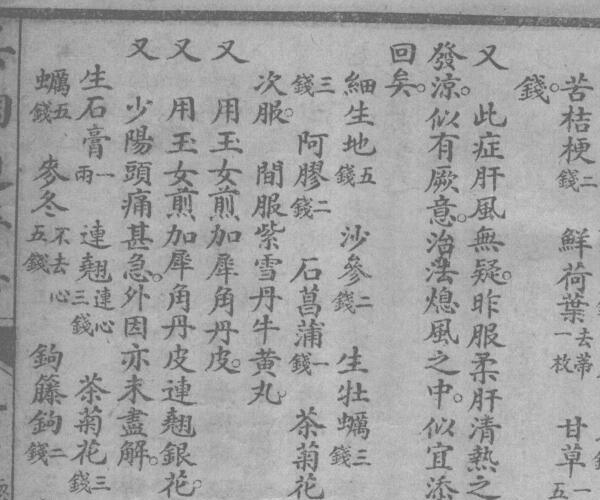 苦桔梗二錢 鮮荷葉去蒂一枚 甘草一
錢。
又 此症肝風無疑。昨服柔肝清熱之
發涼。似有厥意。治法熄風之中。似宜添
回矣。
細生地五錢 沙參二錢 生牡蠣三錢
三錢 阿膠二錢 石菖蒲一錢 茶菊花
次服。 間服紫雪丹牛黄丸
又 用玉女煎加犀角丹皮。
又 用玉女煎加犀角丹皮連翹銀花。
又 少陽頭痛甚急。外因亦未盡解。
生石膏一兩 連翹連心三錢 茶菊花三錢
蠣五錢 麥冬不去心五錢 鉤籐鉤二錢